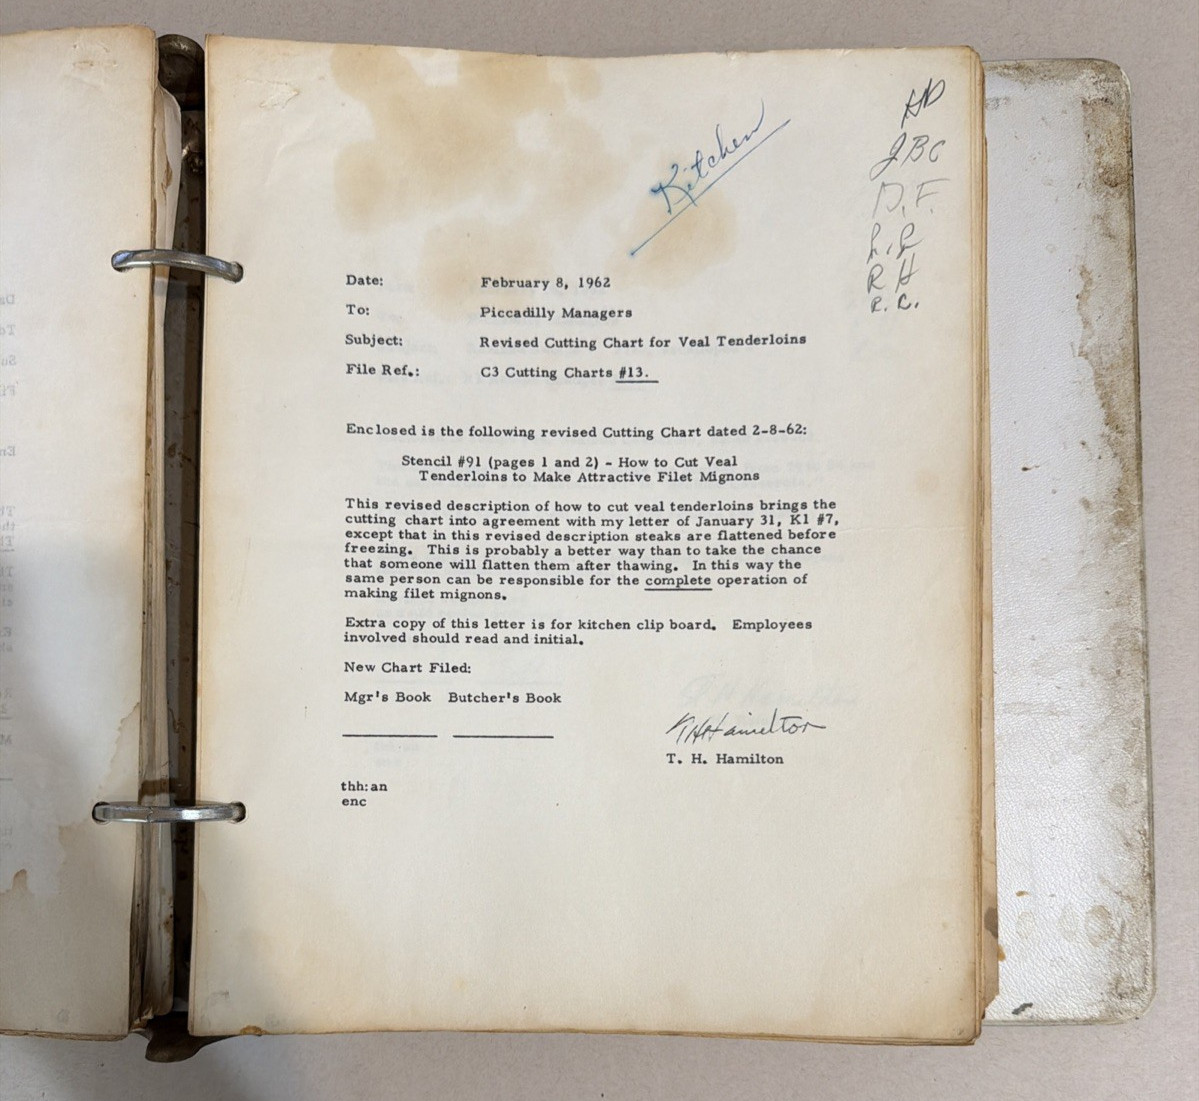 Kitchen
HD
JBC
D.F.
L.G
R H
R.C.
Date: February 8, 1962
To: Piccadilly Managers
Subject: Revised Cutting Chart for Veal Tenderloins
File Ref.: C3 Cutting Charts #13.
Enclosed is the following revised Cutting Chart dated 2-8-62:
Stencil #91 (pages 1 and 2) - How to Cut Veal
Tenderloins to Make Attractive Filet Mignons
This revised description of how to cut veal tenderloins brings the
cutting chart into agreement with my letter of January 31, K1 #7,
except that in this revised description steaks are flattened before
freezing. This is probably a better way than to take the chance
that someone will flatten them after thawing. In this way the
same person can be responsible for the complete operation of
making filet mignons.
Extra copy of this letter is for kitchen clip board. Employees
involved should read and initial.
New Chart Filed:
Mgr's Book Butcher's Book
T H Hamilton
T. H. Hamilton
thh:an
enc